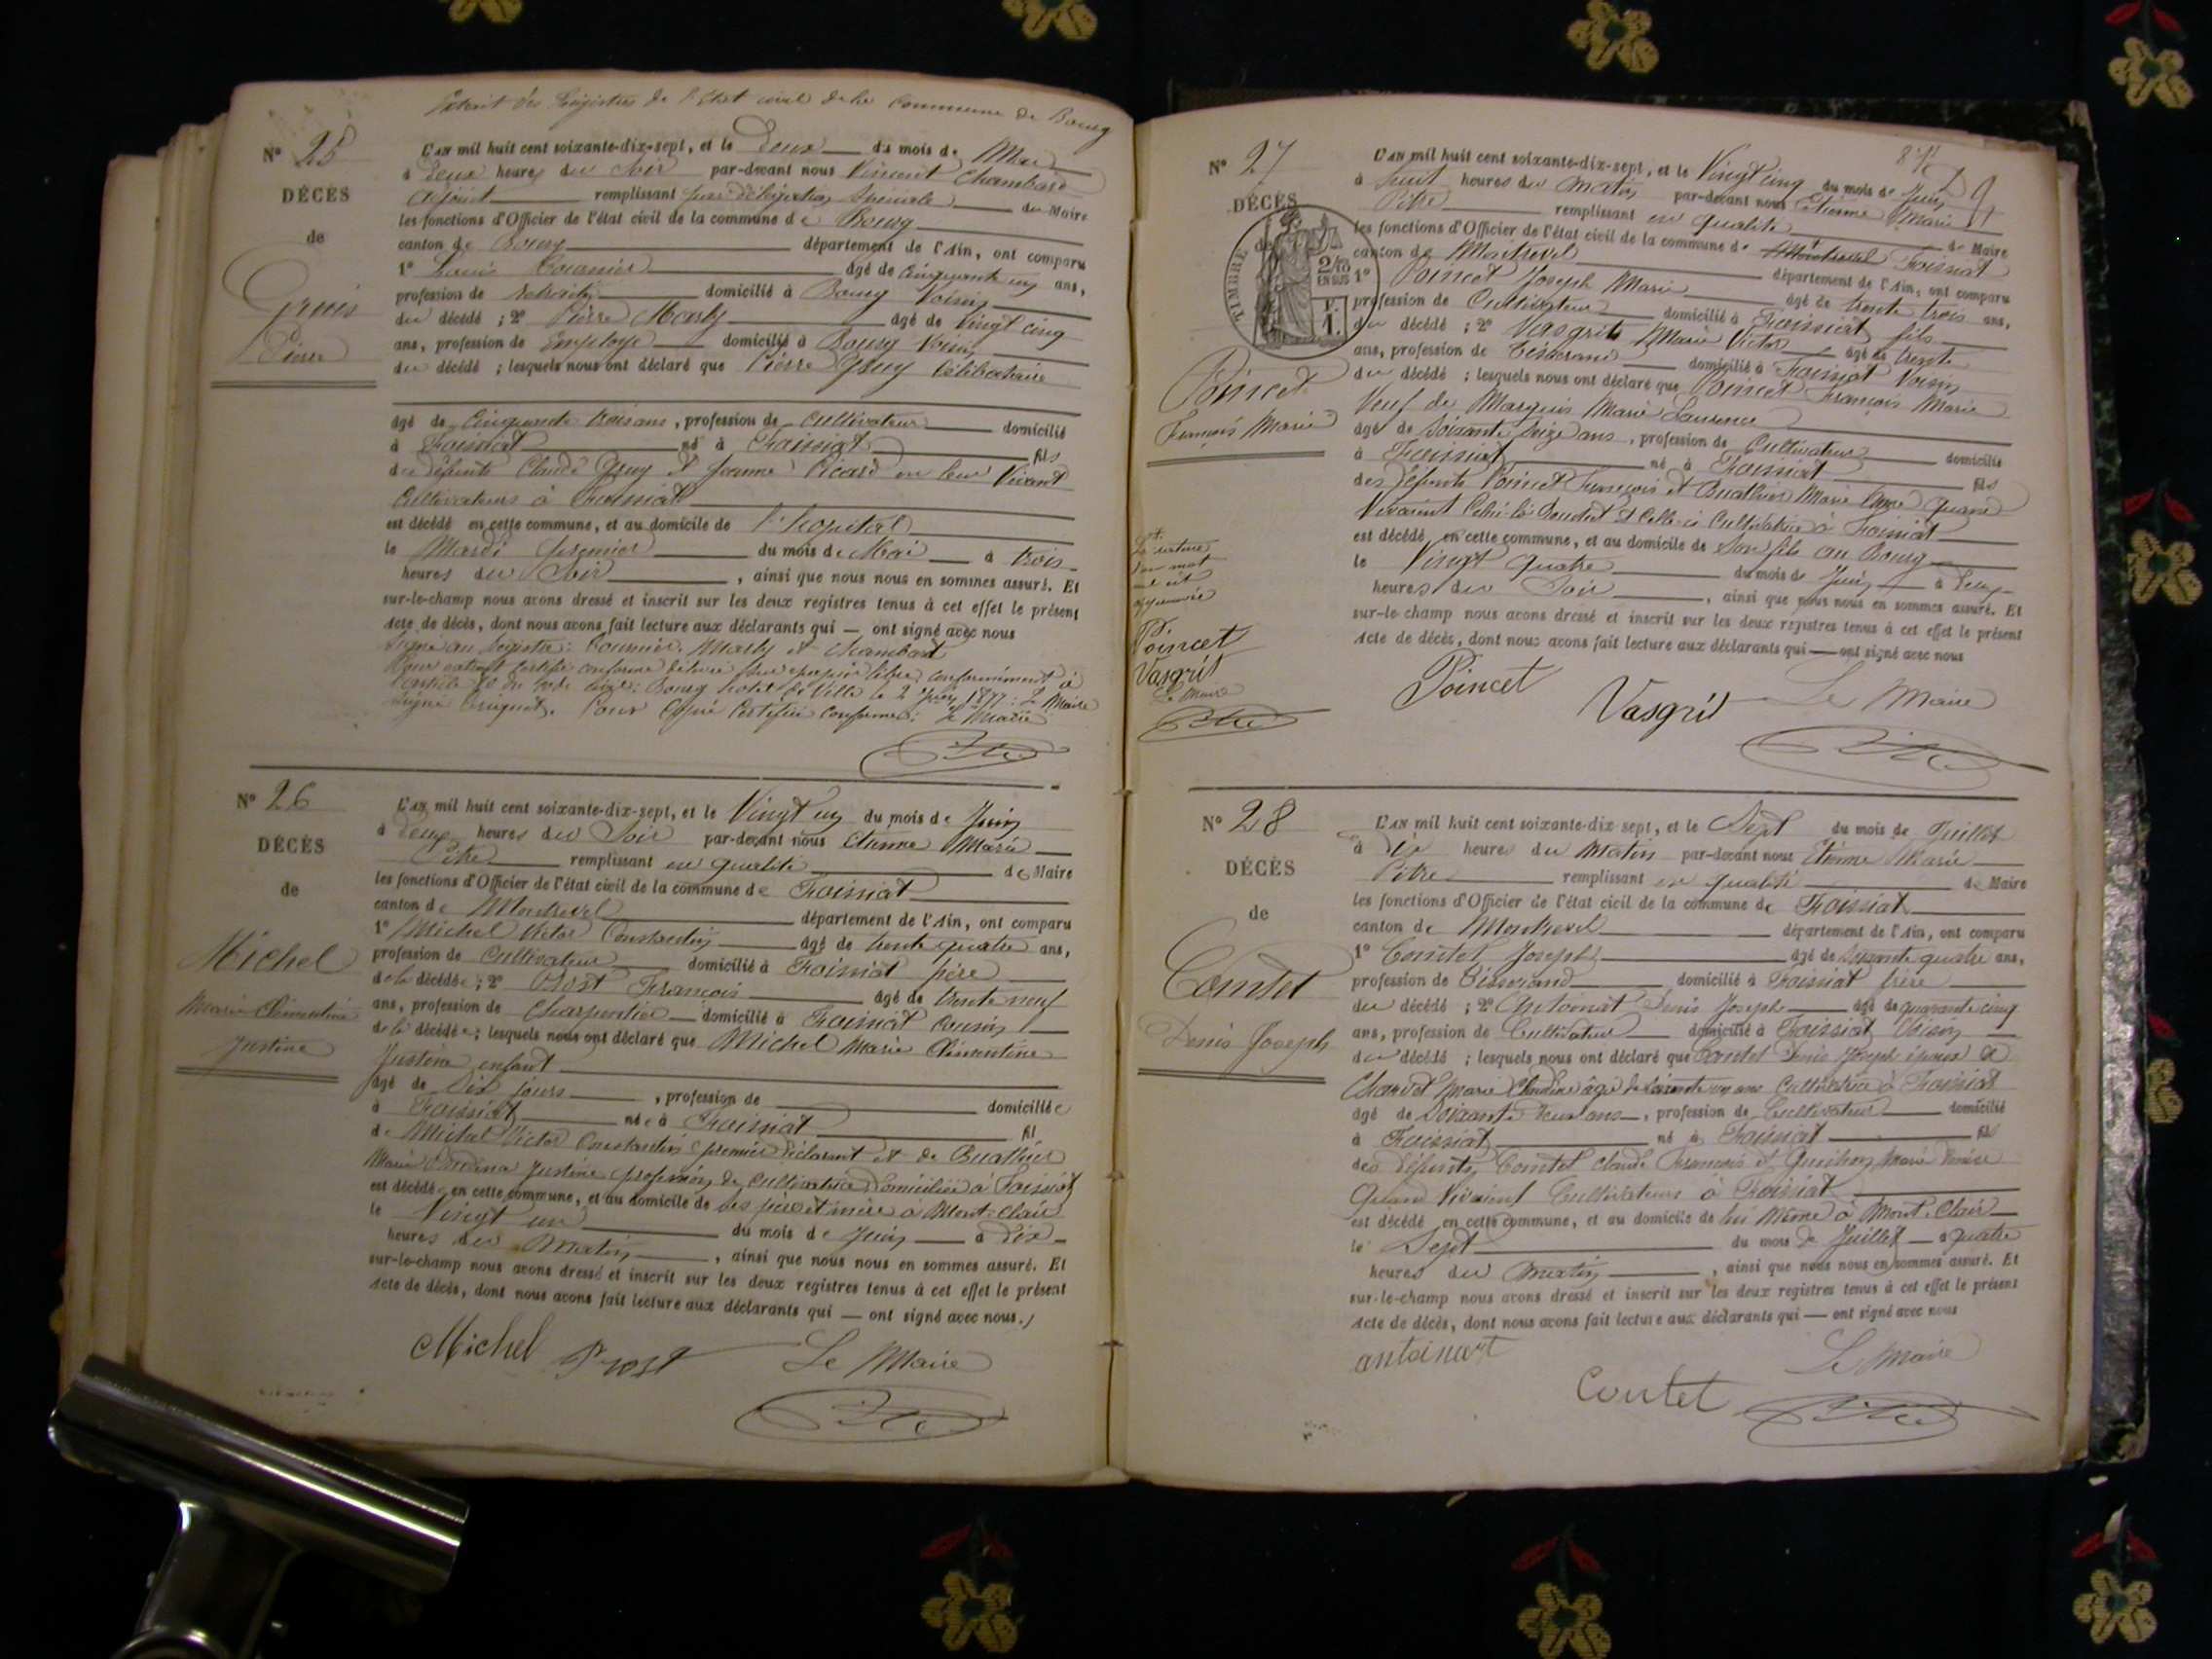 Extrait des Registres de l'Etat civil de la commune de Bourg
N° 25
DÉCÈS
de
Pierre
L'AN mil huit cent soixante-dix-sept, et le Deux du mois de Mai
à Deux heures du Soir par-devant nous Vincent Chambard
adjoint remplissant par délégation Spéciale du Maire
les fonctions d'Officier de l'état civil de la commune de Bourg
canton de Bourg département de l'Ain, ont comparu
1° Louis Cournier âgé de Cinquante un ans,
profession de domicilié à Bourg Voisin
du décédé ; 2° Pierre Marly âgé de Vingt cinq
ans, profession de Employé domicilié à Bourg Voisin
du décédé ; lesquels nous ont déclaré que Pierre Gruy Célibataire
âgé de Cinquante trois ans, profession de Cultivateur domicilié
à Foissiat né à Foissiat fils
de défunts Claude Gruy et Jeanne Picard en leur Vivant
Cultivateurs à Foissiat
est décédé en cette commune, et au domicile de l'hopital
le Mardi premier du mois de Mai à trois
heures du Soir, ainsi que nous nous en sommes assuré. Et
sur-le-champ nous avons dressé et inscrit sur les deux registres tenus à cet effet le présent
Acte de décès, dont nous avons fait lecture aux déclarants qui — ont signé avec nous
Signé au Registre : Cournier, Marly et Chambard
Pour extrait certifié conforme délivré sur papier libre conformément à
l'article 80 du code civil. Bourg hotel de Ville le 2 1877 : Le Maire
Signé . Pour Copie Certifiée conforme : Le Maire
N° 26
DÉCÈS
de
Michel
Marie Clémentine
Justine
L'AN mil huit cent soixante-dix-sept, et le Vingt un du mois de Juin
à Deux heures du Soir par-devant nous Etienne Marie
Pitre remplissant en qualité de Maire
les fonctions d'Officier de l'état civil de la commune de Foissiat
canton de Montrevel département de l'Ain, ont comparu
1° Michel Victor Constantin âgé de trente quatre ans,
profession de Cultivateur domicilié à Foissiat père
de la décédée ; 2° Prost François âgé de trente neuf
ans, profession de Charpentier domicilié à Foissiat Cousin
de la décédée ; lesquels nous ont déclaré que Michel Marie Clémentine
Justine enfant
âgé de Dix jours, profession de domiciliée
à Foissiat née à Foissiat fil
de Michel Victor Constantin premier déclarant et de Buathier
Marie Justine profession de Cultivatrice Domiciliée à Foissiat
est décédée en cette commune, et au domicile de ses père et mère à Mont-Clair
le Vingt un du mois de Juin à Dix
heures du Matin, ainsi que nous nous en sommes assuré. Et
sur-le-champ nous avons dressé et inscrit sur les deux registres tenus à cet effet le présent
Acte de décès, dont nous avons fait lecture aux déclarants qui — ont signé avec nous.
Michel Prost Le Maire
N° 27
DÉCÈS
de
TIMBRE
2/10
EN SUS
F.
1.
Poincet
François Marie
La rature
d'un mot
est
approuvée
Poincet
Vasgrit
Le Maire
L'AN mil huit cent soixante-dix-sept, et le Vingt cinq du mois de Juin
à huit heures du Matin par-devant nous Etienne Marie
Pitre remplissant en qualité de Maire
les fonctions d'Officier de l'état civil de la commune de Montrevel Foissiat
canton de Montrevel département de l'Ain, ont comparu
1° Poincet Joseph Marie âgé de trente trois ans,
profession de Cultivateur domicilié à Foissiat fils
du décédé ; 2° Vasgrit Marie Victor âgé de trente
ans, profession de Tisserand domicilié à Foissiat Voisin
du décédé ; lesquels nous ont déclaré que Poincet François Marie
Veuf de Marguin Marie Laurence
âgé de Soixante Seize ans, profession de Cultivateur domicilié
à Foissiat né à Foissiat fils
des défunts Poincet François et Buathier Marie Anne quand
Vivaient Celui-là et Celle-ci Cultivatrice à Foissiat
est décédé en cette commune, et au domicile de Son fils au Bourg
le Vingt quatre du mois de Juin à Deux
heures du Soir, ainsi que nous nous en sommes assuré. Et
sur-le-champ nous avons dressé et inscrit sur les deux registres tenus à cet effet le présent
Acte de décès, dont nous avons fait lecture aux déclarants qui — ont signé avec nous
Poincet Vasgrit Le Maire
N° 28
DÉCÈS
de
Contet
Denis Joseph
L'AN mil huit cent soixante-dix-sept, et le Sept du mois de Juillet
à Dix heures du Matin par-devant nous Etienne Marie
Pitre remplissant en qualité de Maire
les fonctions d'Officier de l'état civil de la commune de Foissiat
canton de Montrevel département de l'Ain, ont comparu
1° Contet Joseph âgé de Soixante quatre ans,
profession de Tisserand domicilié à Foissiat frère
du décédé ; 2° Antoinat Denis Joseph âgé de quarante cinq
ans, profession de Cultivateur domicilié à Foissiat Voisin
du décédé ; lesquels nous ont déclaré que Contet Denis Joseph époux de
Marie Claudine âgée de Soixante un ans Cultivatrice à Foissiat
âgé de Soixante ans, profession de Cultivateur domicilié
à Foissiat né à Foissiat fils
des défunts Contet Claude François et Marie Denise
Quand Vivaient Cultivateurs à Foissiat
est décédé en cette commune, et au domicile de lui Même à Mont-Clair
le Sept du mois de Juillet à quatre
heures du Matin, ainsi que nous nous en sommes assuré. Et
sur-le-champ nous avons dressé et inscrit sur les deux registres tenus à cet effet le présent
Acte de décès, dont nous avons fait lecture aux déclarants qui — ont signé avec nous
antoinat Le Maire
Contet